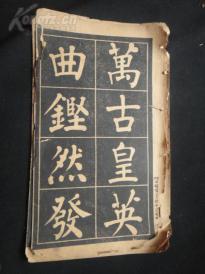 萬古皇英
曲鏗然發